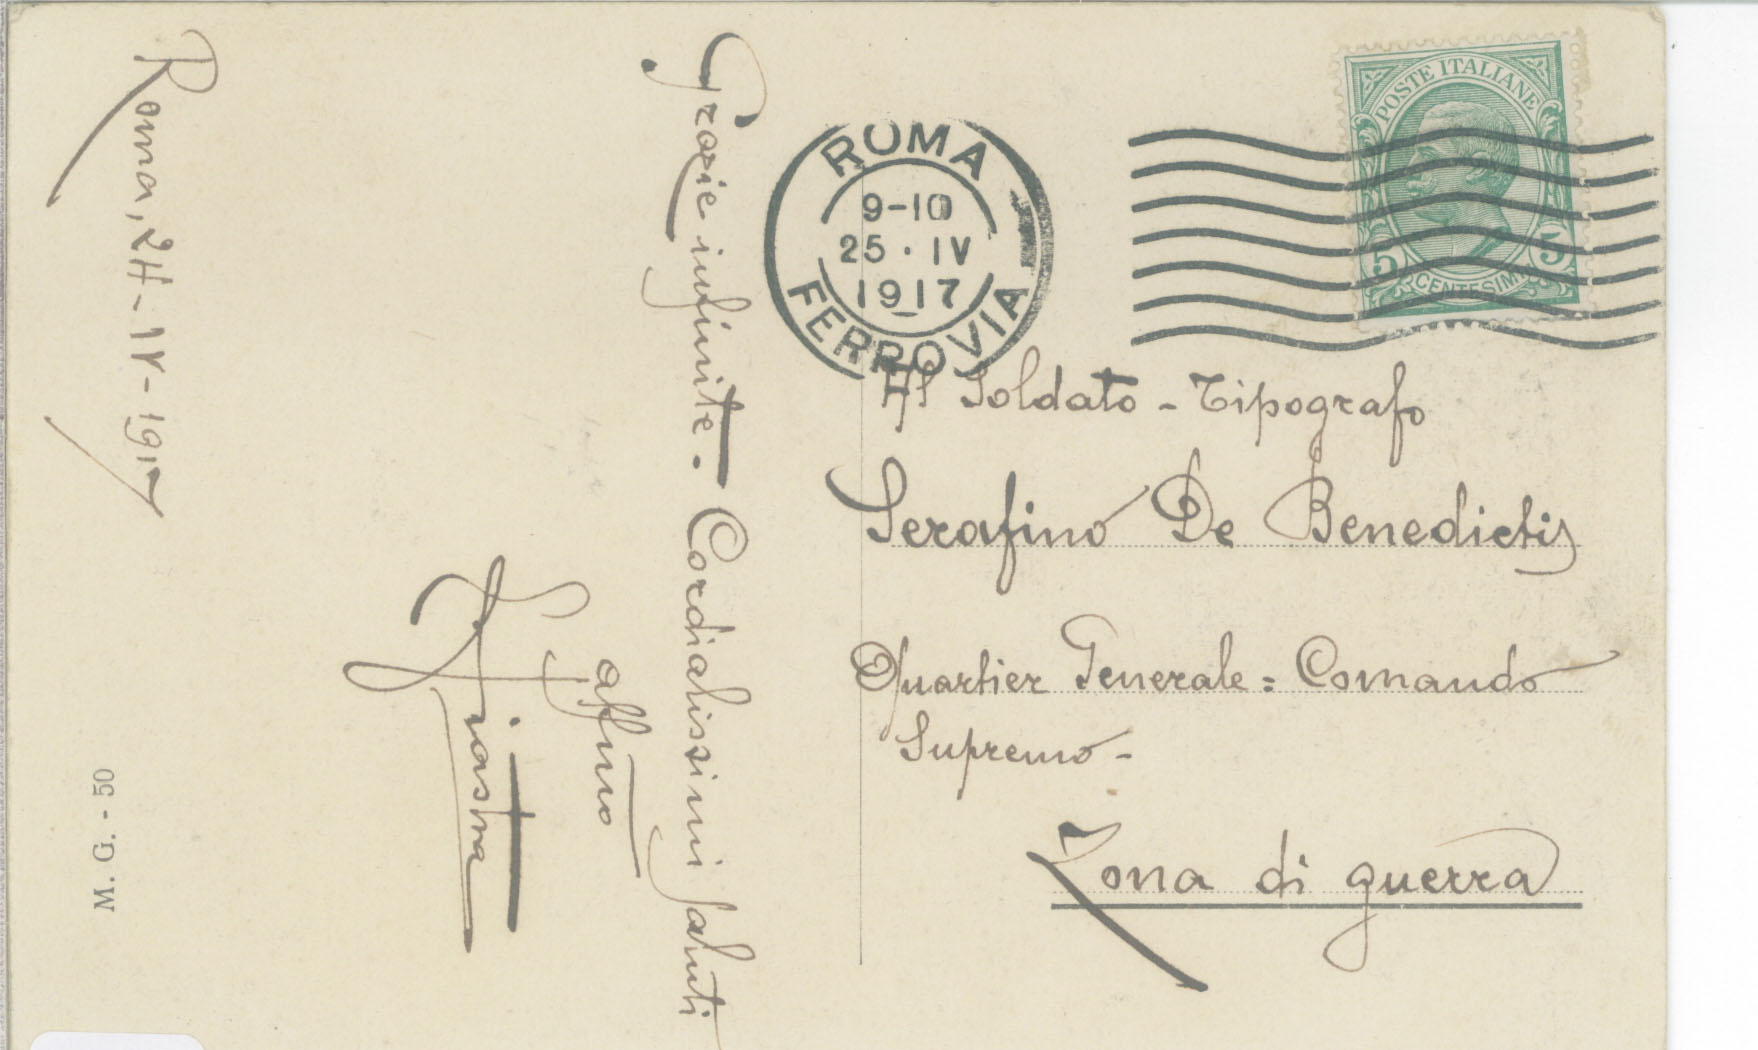 Roma, 24-IV-1917
Grazie infinite. Cordialissimi saluti
affmo
M. G. - 50
ROMA
9-10
25 · IV
1917
FERROVIA
POSTE ITALIANE
5 5
CENTESIMI
Al Soldato - Tipografo
Serafino De Benedictis
Quartier Generale = Comando
Supremo -
Zona di guerra